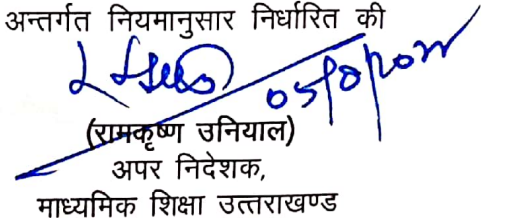 अन्तर्गत नियमानुसार निर्धारित की
(रामकृष्ण उनियाल)
अपर निदेशक,
माध्यमिक शिक्षा उत्तराखण्ड